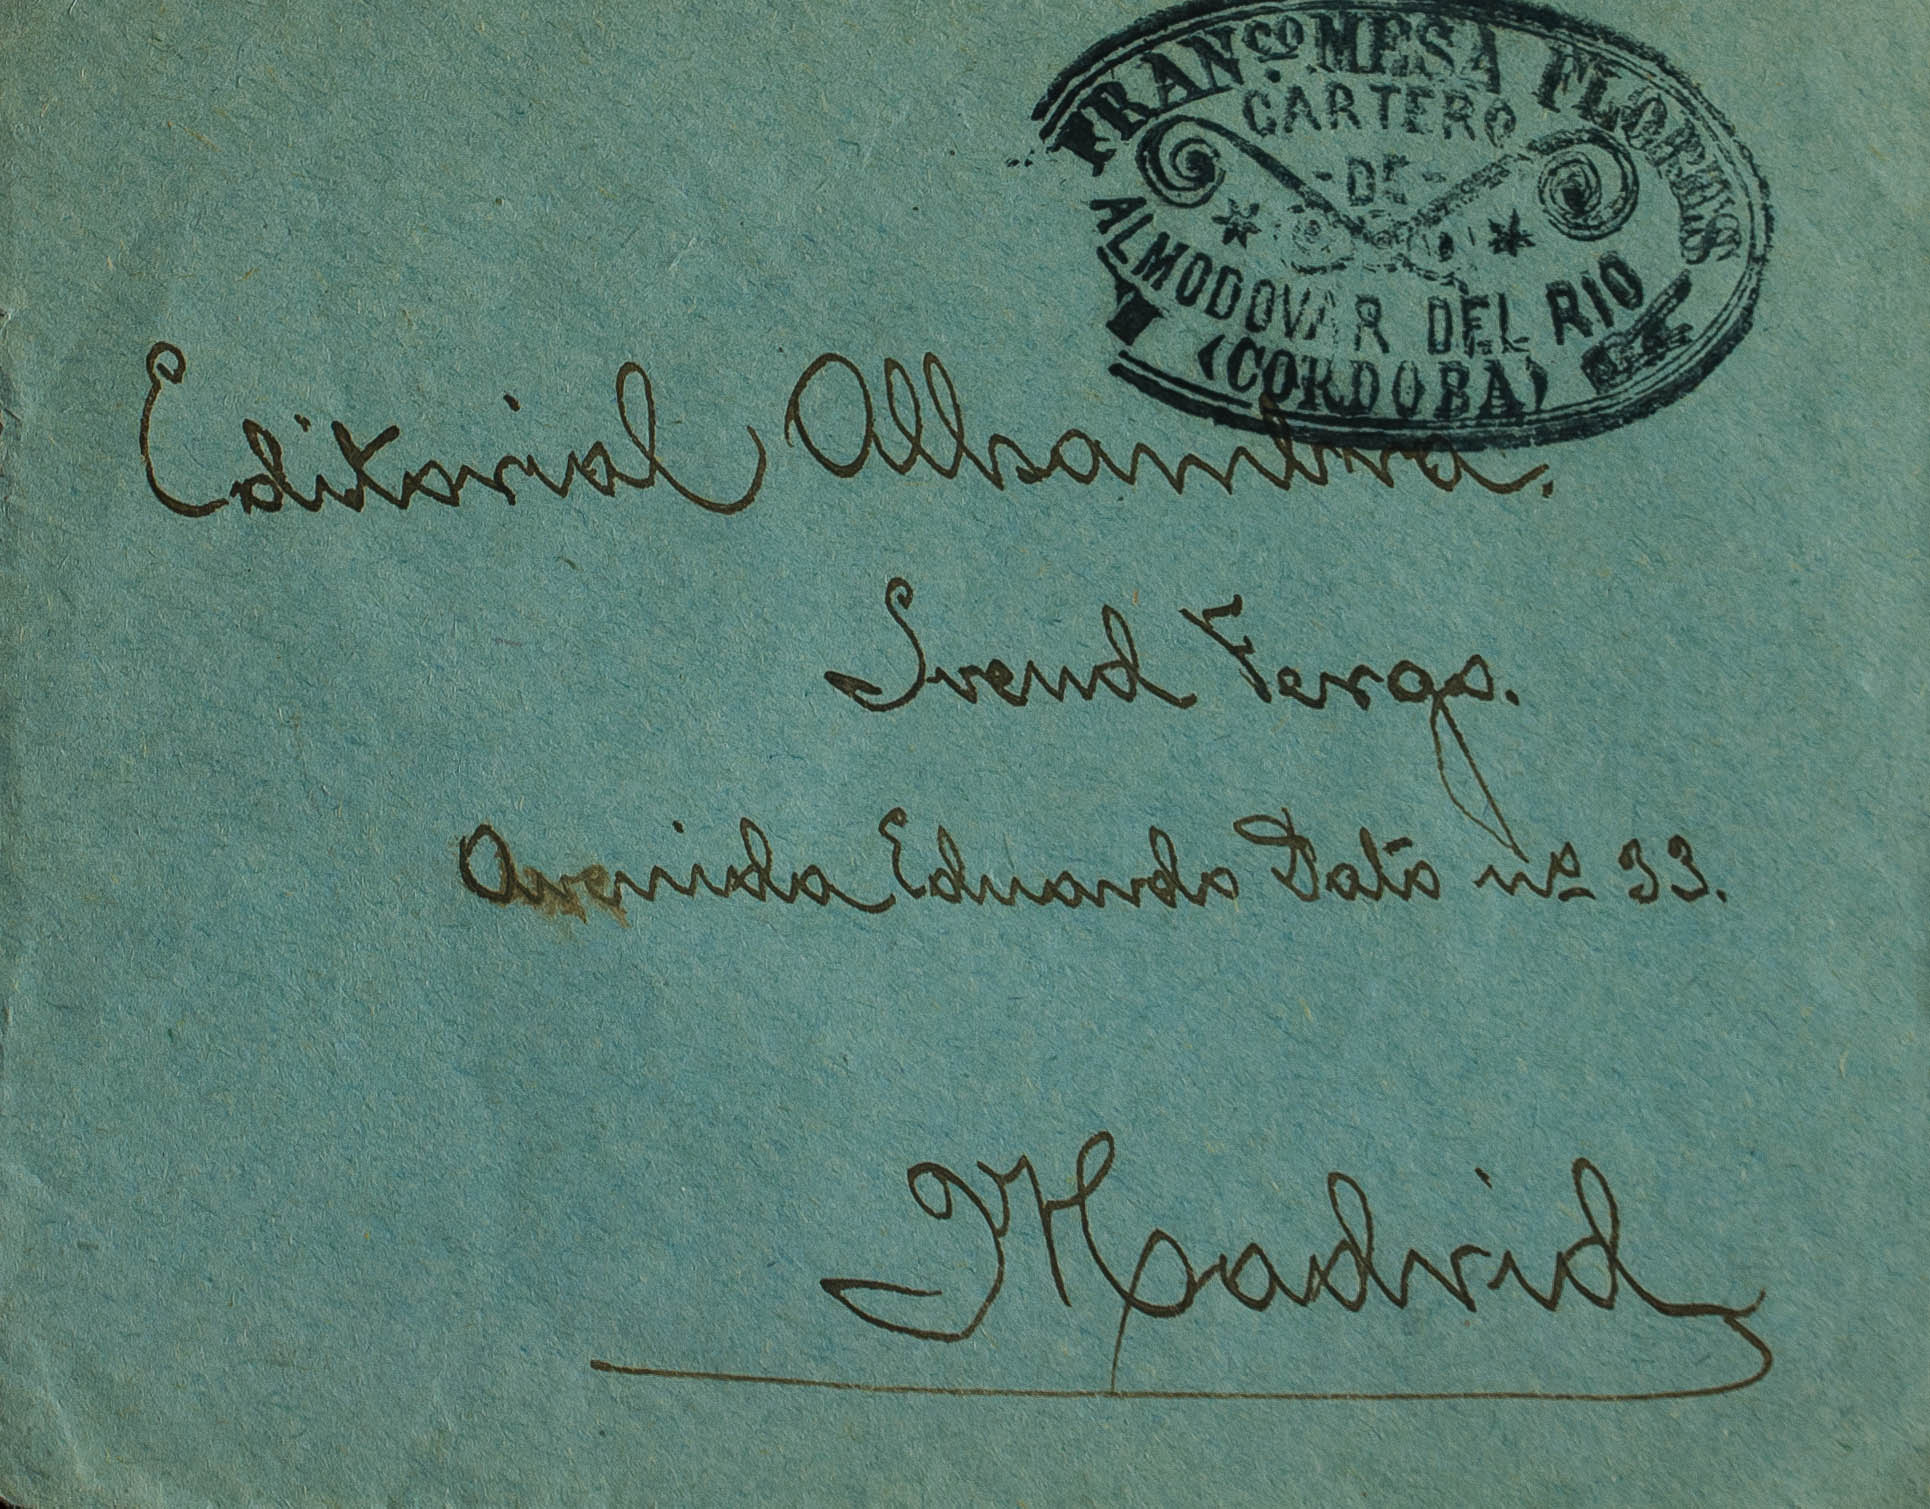 FRANCO MESA FLORES
CARTERO
-DE-
ALMODOVAR DEL RIO
(CORDOBA)
Editorial Alhambra.
Svend Vergo.
Avenida Eduardo Dato nº 33.
Madrid